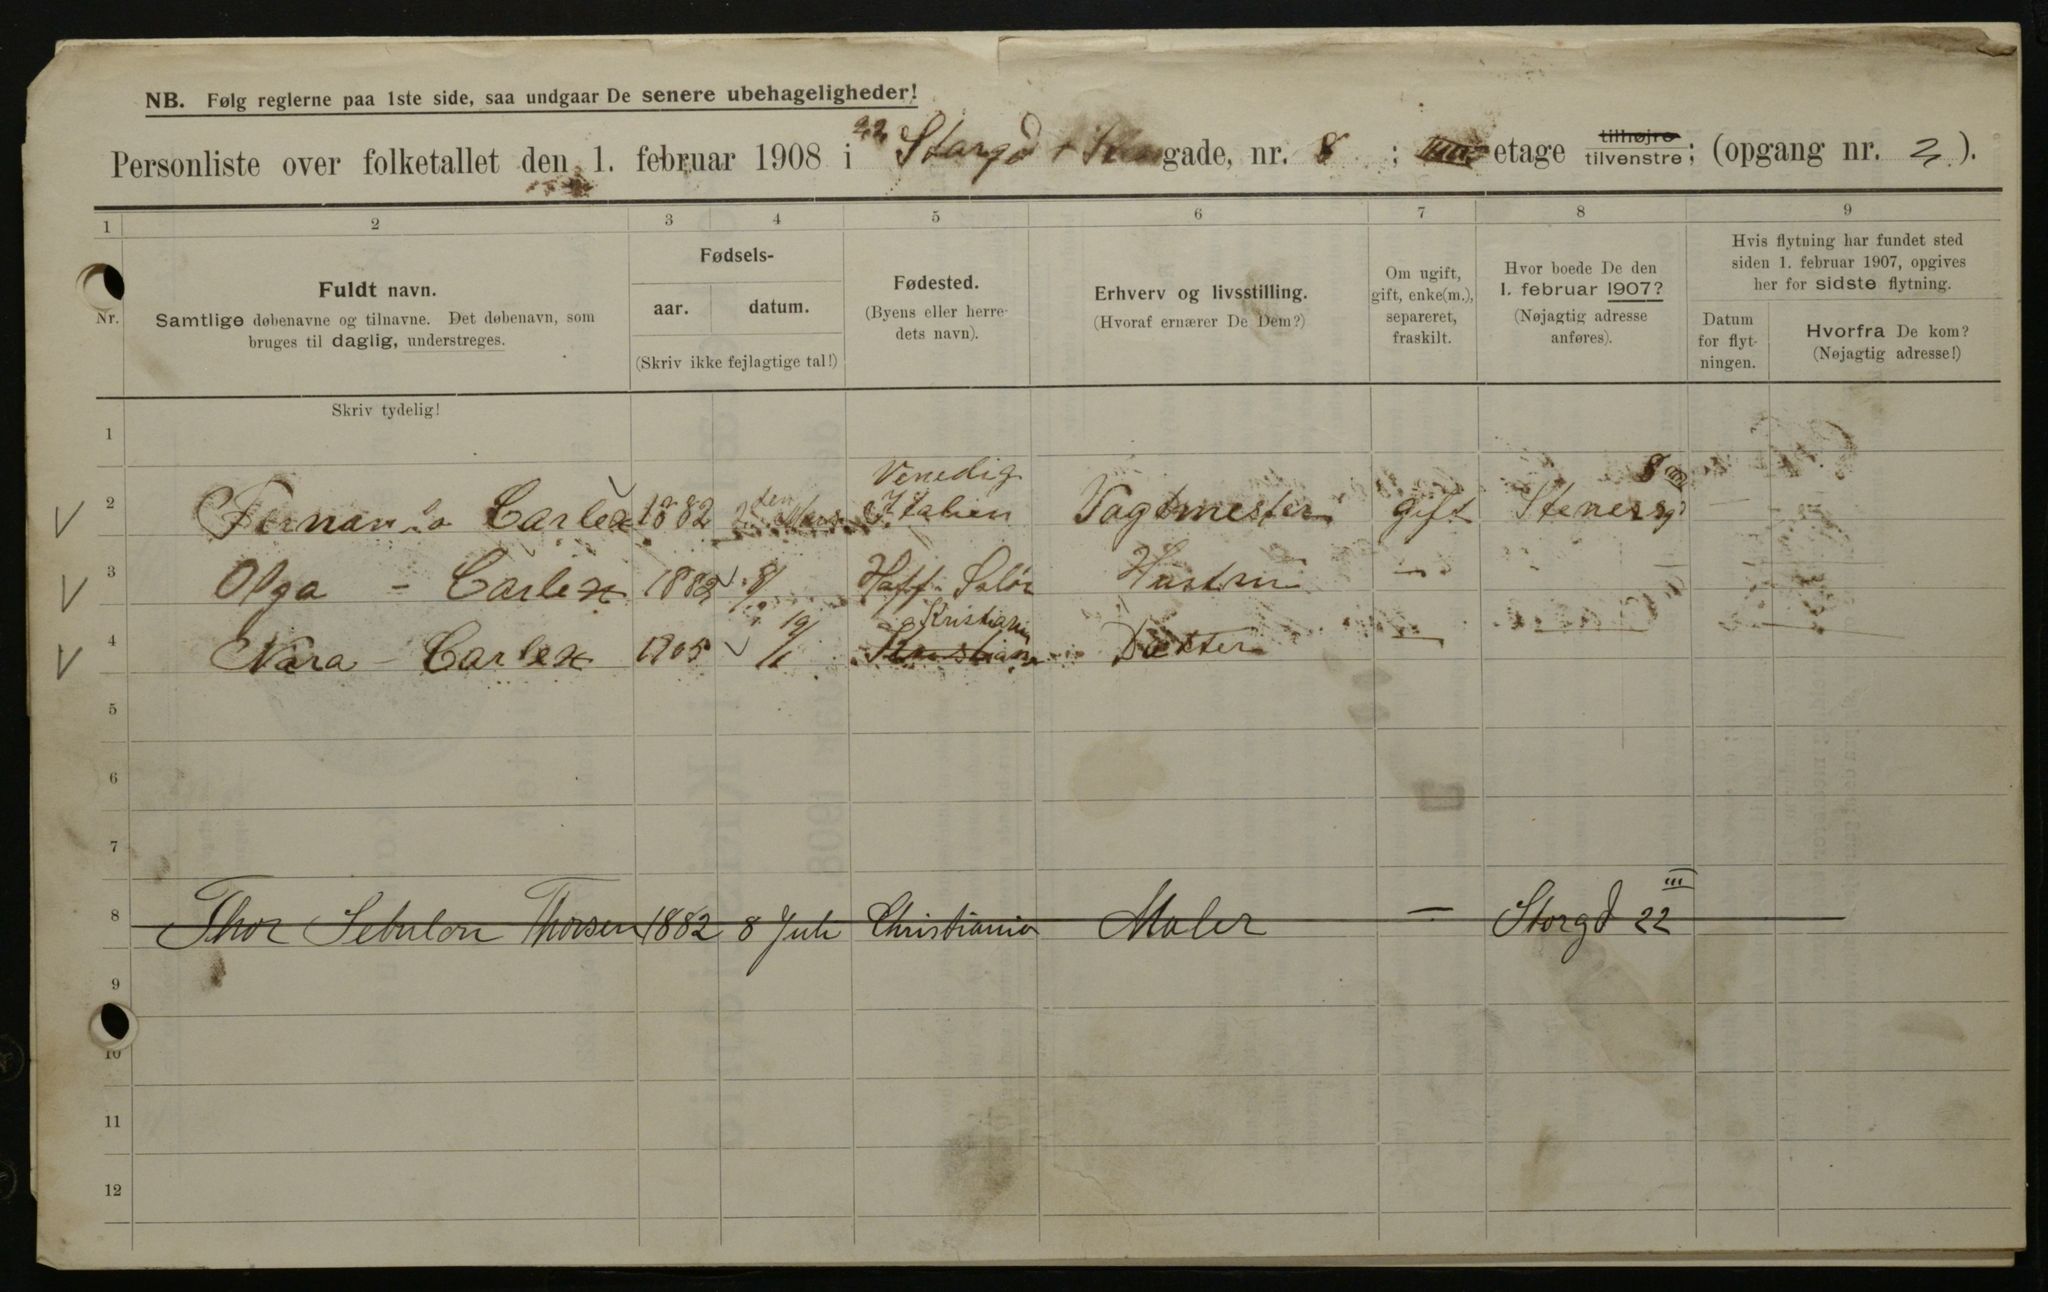 NB. Følg reglerne paa 1ste side, saa undgaar De senere ubehageligheder!
Personliste over folketallet den 1. februar 1908 i 22 Storgd + gade, nr. 8 ; etage tilhøjre tilvenstre; (opgang nr. 2).
1 2 3 4 5 6 7 8 9
Nr.
Fuldt navn.
Samtlige døbenavne og tilnavne. Det døbenavn, som
bruges til daglig, understreges.
Fødsels-
aar. datum.
(Skriv ikke fejlagtige tal!)
Fødested.
(Byens eller herre-
dets navn).
Erhverv og livsstilling.
(Hvoraf ernærer De Dem?)
Om ugift,
gift, enke(m.),
separeret,
fraskilt.
Hvor boede De den
1. februar 1907?
(Nøjagtig adresse
anføres).
Hvis flytning har fundet sted
siden 1. februar 1907, opgives
her for sidste flytning.
Datum
for flyt-
ningen.
Hvorfra De kom?
(Nøjagtig adresse!)
Skriv tydelig!
1
Venedig
2 Fernando Carlex 1882 Mars Italien Vagtmester gift Stenersgd 8
3 Olga - Carlex 1882 8/ Hoff Solør Hustru —
Kristiania
4 Nora - Carlex 1905 19/1 Datter —
5
6
7
8 Thor Sebulon Thorsen 1882 8 Juli Christiania Maler — Storgd 22 III
9
10
11
12